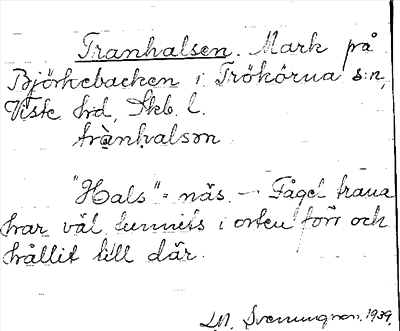 Tranhalsen. Mark på
Björkebacken i Trökörna s:n,
Viste hrd, Skb. l.
trànhalsən
"Hals" = näs. — Fågel trana
har väl funnits i orten förr och
hållit till där.
Svenungson. 1939.